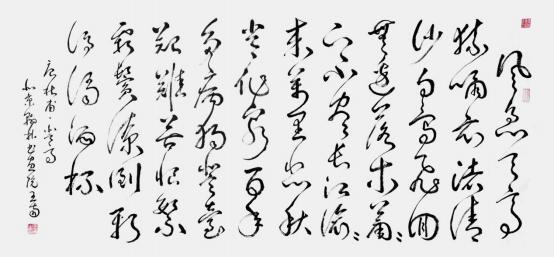 風急天高
猿嘯哀渚清
沙白鳥飛回
無邊落木蕭〻
下不盡長江滚〻
来萬里悲秋
常作客百年
多病獨登臺
艱難苦恨繁
霜鬢潦倒新
停濁酒杯
唐杜甫·登高
北京翰林书画院王